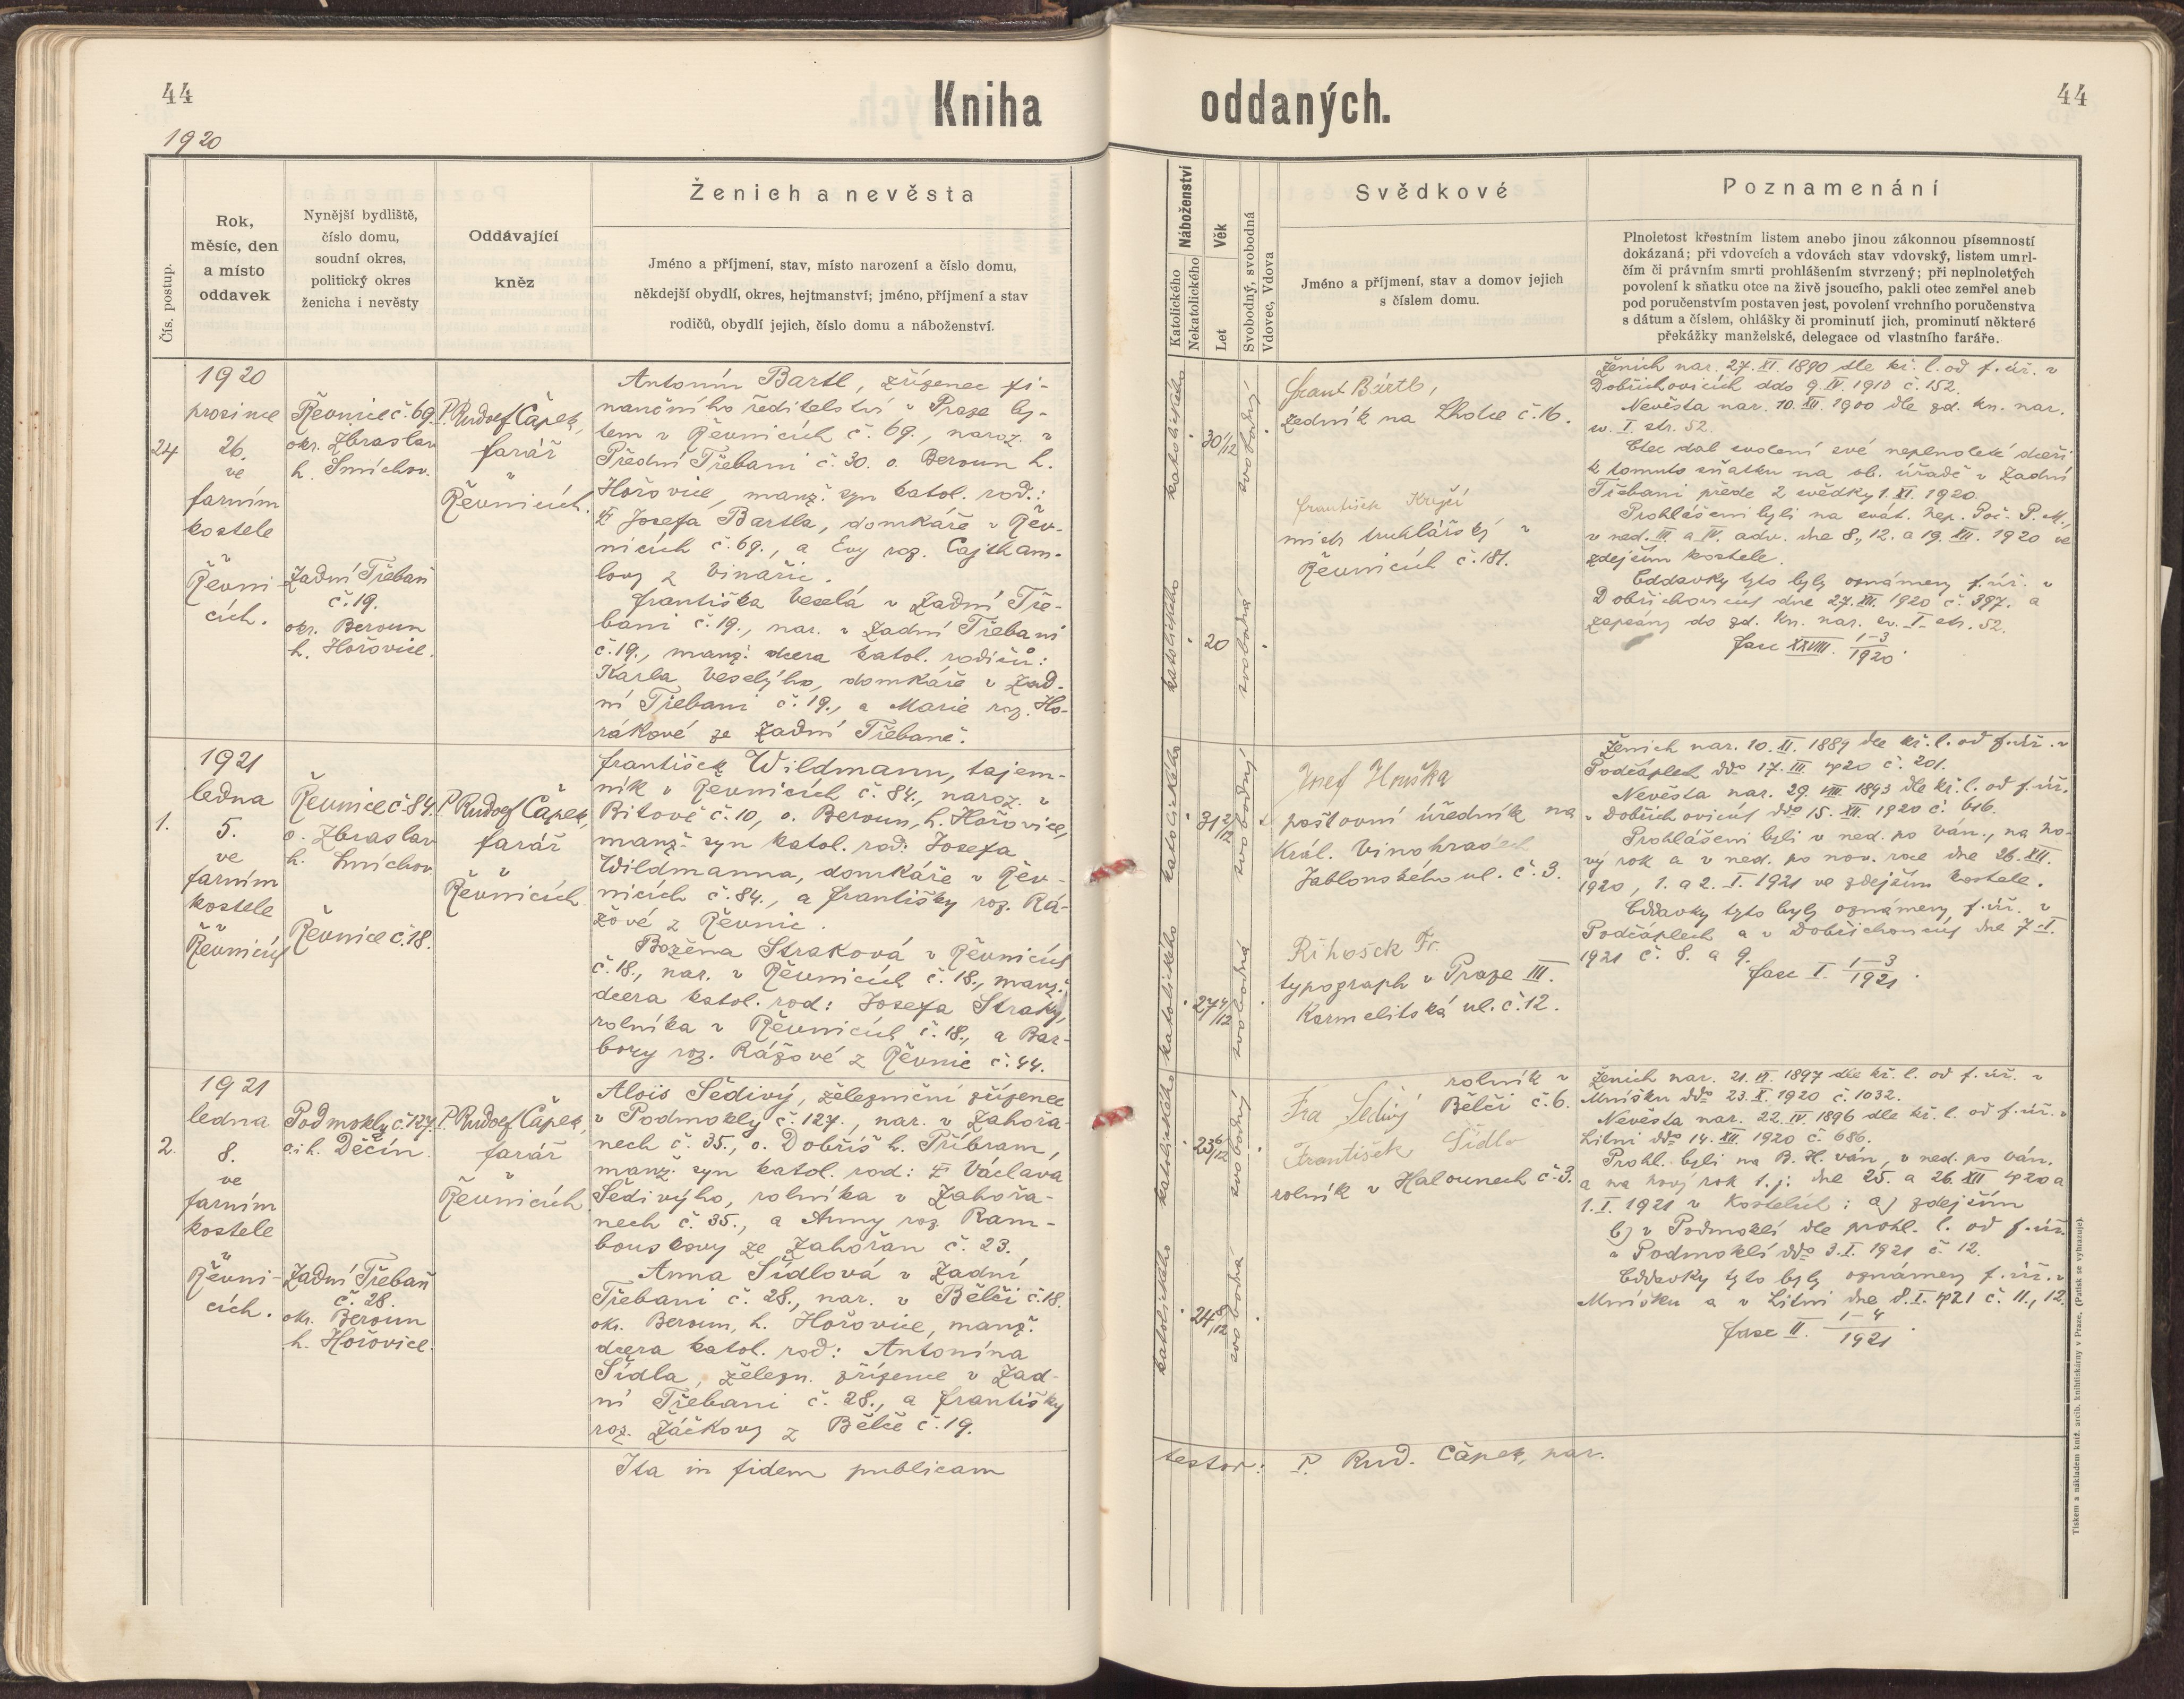 44
Kniha
1920
Čís. postup.
Rok,
měsíc, den
a místo
oddavek
Nynější bydliště,
číslo domu,
soudní okres,
politický okres
ženicha i nevěsty
Oddávající
kněz
Ženich a nevěsta
Jméno a příjmení, stav, místo narození a číslo domu,
někdejší obydlí, okres, hejtmanství; jméno, příjmení a stav
rodičů, obydlí jejich, číslo domu a náboženství.
24
1920
prosince
26.
ve
farním
kostele
v
Řevni-
cích.
Řevnice č. 69.
okr. Zbraslav
h. Smíchov.
Zadní Třebaň
č. 19.
okr. Beroun
h. Hořovice.
P. Rudolf Čápek,
farář
v
Řevnicích.
Antonín Bartl, zřízenec fi-
nančního ředitelství v Praze by-
tem v Řevnicích č. 69., naroz. v
Přední Třebani č. 30. o. Beroun h.
Hořovice, manž. syn katol. rod.:
Josefa Bartla, domkáře v Řev-
nicích č. 69., a Evy roz. Cajtham-
lovy z Vinařic.
Františka Veselá v Zadní Tře-
bani č. 19., nar. v Zadní Třebani
č. 19., manž. dcera katol. rodičů:
Karla Veselýho, domkáře v Zad-
ní Třebani č. 19., a Marie roz. Ho-
rákové ze Zadní Třebaně.
1.
1921
ledna
5.
ve
farním
kostele
v
Řevnicích
Řevnice č. 84.
o. Zbraslav
h. Smíchov
Řevnice č. 18.
P. Rudolf Čápek,
farář
v
Řevnicích
František Wildmann, tajem-
ník v Řevnicích č. 84., naroz. v
Bítově č. 10, o. Beroun, h. Hořovice,
manž. syn katol. rod: Josefa
Wildmanna, domkáře v Řev-
nicích č. 84., a Františky roz. Rá-
žové z Řevnic.
Božena Straková v Řevnicích
č. 18., nar. v Řevnicích č. 18., manž.
dcera katol. rod: Josefa Straky,
rolníka v Řevnicích č. 18., a Bar-
bory roz. Rážové z Řevnic č. 44.
2.
1921
ledna
8.
ve
farním
kostele
v
Řevni-
cích.
Podmokly č. 127.
o. i h. Děčín.
Zadní Třebaň
č. 28.
okr. Beroun
h. Hořovice.
P. Rudolf Čápek,
farář
v
Řevnicích
Alois Šedivý, železniční zřízenec
v Podmokly č. 127., nar. v Zahořa-
nech č. 35., o. Dobříš h. Příbram,
manž. syn katol. rod: Václava
Šedivýho, rolníka v Zahořa-
nech č. 35., a Anny roz. Ram-
bouskovy ze Zahořan č. 23.
Anna Šídlová v Zadní
Třebani č. 28., nar. v Bělči č. 18.
okr. Beroun, h. Hořovice, manž.
dcera katol. rod: Antonína
Šídla, železn. zřízence v Zad-
ní Třebani č. 28., a Františky
roz. Žáčkovy z Bělče č. 19.
Ita in fidem publicam
oddaných.
44
Náboženství
Katolického
Nekatolického
Věk
Let
Svobodný, svobodná
Vdovec, Vdova
Svědkové
Jméno a příjmení, stav a domov jejich
s číslem domu.
Poznamenání
Plnoletost křestním listem anebo jinou zákonnou písemností
dokázaná; při vdovcích a vdovách stav vdovský, listem umrl-
čím či právním smrti prohlášením stvrzený; při neplnoletých
povolení k sňatku otce na živě jsoucího, pakli otec zemřel aneb
pod poručenstvím postaven jest, povolení vrchního poručenstva
s dátum a číslem, ohlášky či prominutí jich, prominutí některé
překážky manželské, delegace od vlastního faráře.
katolického
30 1/12
svobodný
katolického
20
svobodná
Frant Bártl,
zedník na Lhotce č. 16.
František Krejčí
mistr truhlářský v
Řevnicích č. 181.
Ženich nar. 27. XI. 1890 dle kř. l. od f. úř. v
Dobřichovicích ddo 9. IV. 1910 č. 152.
Nevěsta nar. 10. XII. 1900 dle zd. kn. nar.
sv. I. str. 52.
Otec dal svolení své neplnoleté dceři
k tomuto sňatku na ob. úřadě v Zadní
Třebani přede 2 svědky 1. XI. 1920.
Prohlášeni byli na svát. Nep. Poč. P. M.,
v ned. III. a IV. adv. dne 8., 12. a 19. XII. 1920 ve
zdejším kostele.
Oddavky tyto byly oznámeny f. úř. v
Dobřichovicích dne 27. XII. 1920 č. 397. a
zapsány do zd. kn. nar. sv. I. str. 52.
fasc XXVIII. 1-3/1920.
katolického
31 2/12
svobodný
katolického
27 4/12
svobodná
Josef Hruška
poštovní úředník na
Král. Vinohradech
Jablonského ul. č. 3.
Říhošek Fr.
typograph v Praze III.
Karmelitská ul. č. 12.
Ženich nar. 10. XI. 1889 dle kř. l. od f. úř. v
Podčáplech ddo 17. III. 1920 č. 201.
Nevěsta nar. 29. VIII. 1893 dle kř. l. od f. úř.
v Dobřichovicích ddo 15. XII. 1920 č. 616.
Prohlášeni byli v ned. po ván., na no-
vý rok a v ned. po nov. roce dne 26. XII.
1920, 1. a 2. I. 1921 ve zdejším kostele.
Oddavky tyto byly oznámeny f. úř. v
Podčáplech a v Dobřichovicích dne 7. I.
1921 č. 8. a 9.
fasc I. 1-3/1921.
katolického
23 6/12
svobodný
katolického
24 8/12
svobodná
rolník v
Fra Šedivý Bělči č. 6.
František Šídlo
rolník v Halounech č. 3.
Ženich nar. 21. VI. 1897 dle kř. l. od f. úř. v
Mníšku ddo 23. X. 1920 č. 1032.
Nevěsta nar. 22. IV 1896 dle kř. l. od f. úř. v
Litni ddo 14. XII. 1920 č. 686.
Prohl. byli na B. H. ván, v ned. po ván.
a na nový rok t. j. dne 25. a 26. XII 1920 a
1. I. 1921 v kostelích: a) zdejším
b) v Podmoklí dle prohl. l. od f. úř.
v Podmoklí ddo 3. I. 1921 č. 12.
Oddavky tyto byly oznámeny f. úř. v
Mníšku a v Litni dne 8. I. 1921 č. 11., 12.
fasc II. 1-4/1921.
testor: P. Rud. Čápek, par.
Tiskem a nákladem kníž. arcib. knihtiskárny v Praze. (Patisk se vyhrazuje).